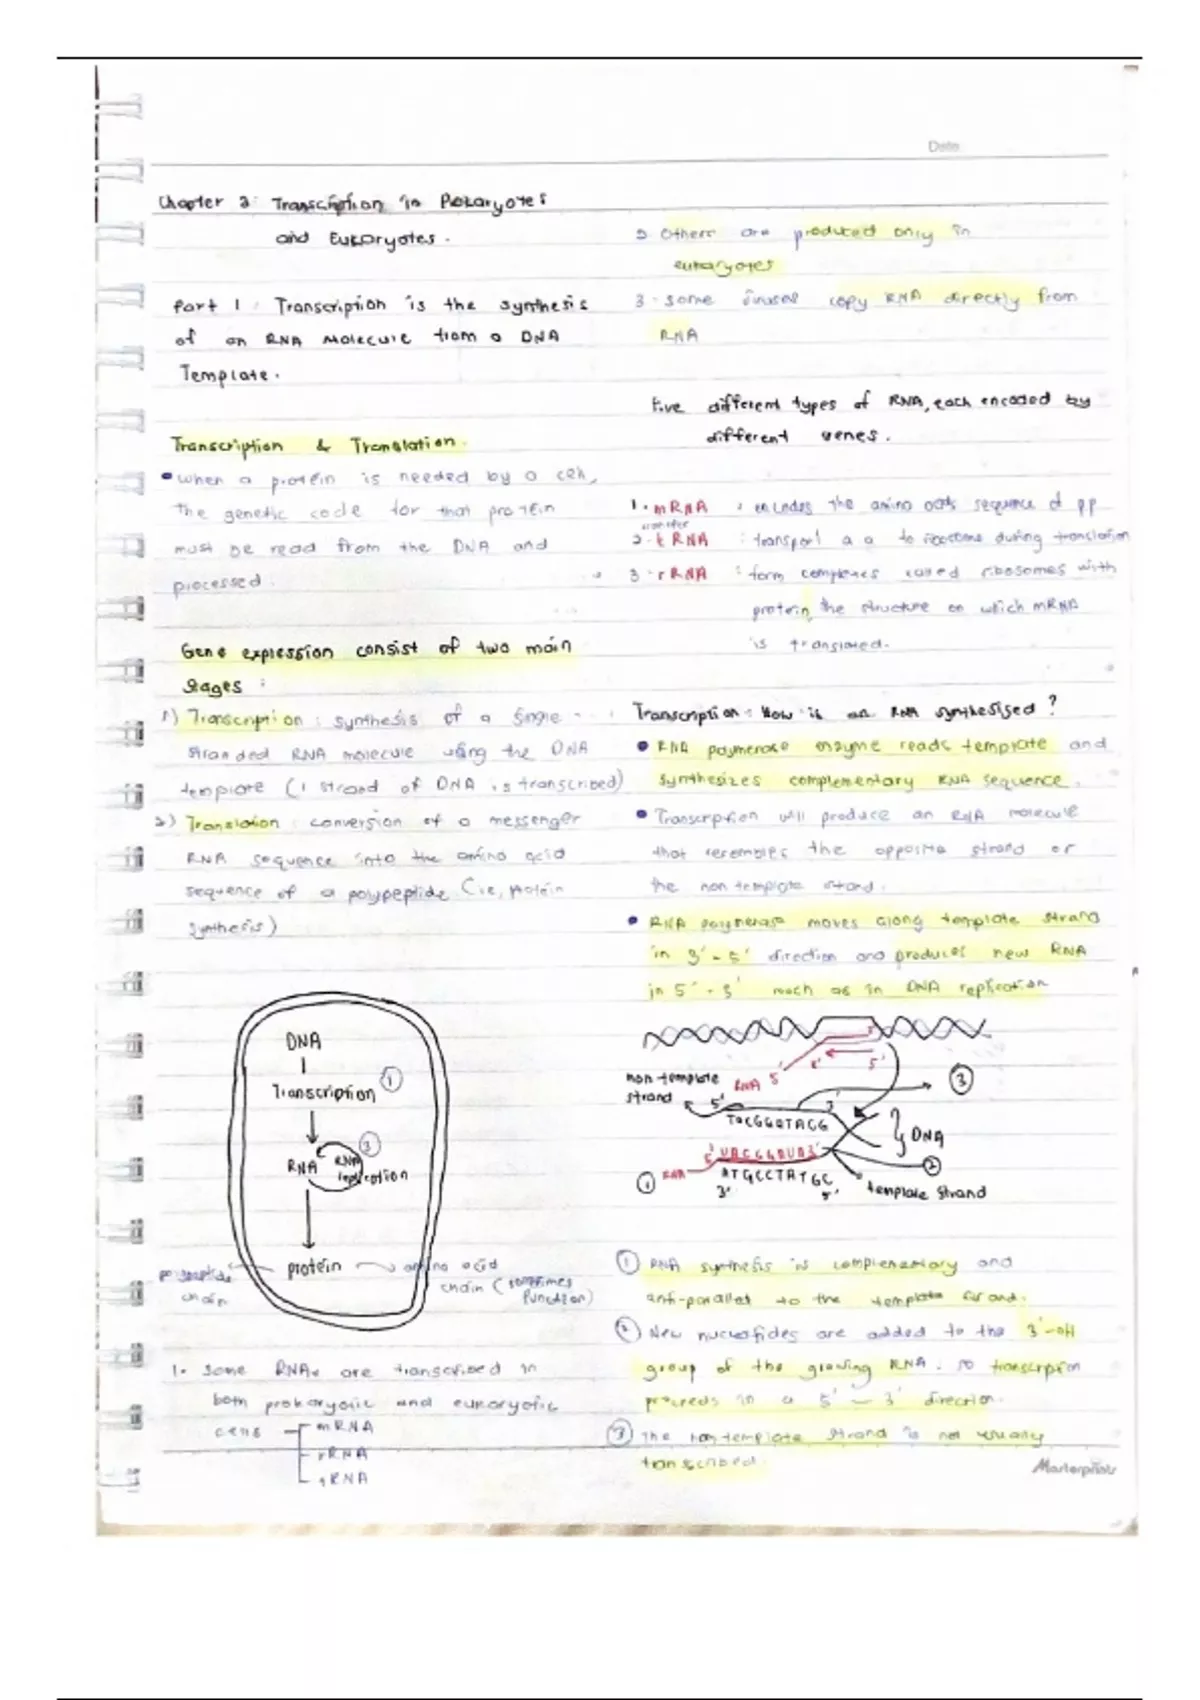 Date
Chapter 2: Transcription in Prokaryotes
and Eukaryotes.
Part 1: Transcription is the synthesis
of an RNA Molecule from a DNA
Template.
Transcription & Translation.
• When a protein is needed by a cell,
the genetic code for that protein
must be read from the DNA and
processed.
Gene expression consist of two main
stages:
1) Transcription: synthesis of a single-
stranded RNA molecule using the DNA
template (1 strand of DNA is transcribed)
2) Translation: conversion of a messenger
RNA sequence into the amino acid
sequence of a polypeptide (i.e, protein
synthesis)
DNA
Transcription ①
RNA
RNA replication ③
protein
polypeptide
chain
amino acid
chain (sometimes
function)
1. Some RNAs are transcribed in
both prokaryotic and eukaryotic
cells
mRNA
rRNA
tRNA
2. Others are produced only in
eukaryotes
3. some viruses copy RNA directly from
RNA
Five different types of RNA, each encoded by
different genes.
1. mRNA : encodes the amino acids sequence of pp
transfer
2. tRNA : transport a a to ribosome during translation
3. rRNA : form complexes called ribosomes with
protein, the structure on which mRNA
is translated.
Transcription: How is an RNA synthesised?
• RNA polymerase enzyme reads template and
synthesizes complementary RNA sequence.
• Transcription will produce an RNA molecule
that resembles the opposite strand or
the non template strand.
• RNA polymerase moves along template strand
in 3'-5' direction and produces new RNA
in 5'-3' much as in DNA replication
RNA 5'
5'
non-template
strand
5'
3'
③
TACGGATACG
DNA
5' UACGGAUA 3'
② 
① RNA
ATGCCTATGC
3'
5'
template strand
① RNA synthesis is complementary and
anti-parallel to the template strand.
② New nucleotides are added to the 3'-OH
group of the growing RNA. so transcription
proceeds in a 5'-3' direction.
③ The non-template strand is not usually
transcribed.
Masterprints